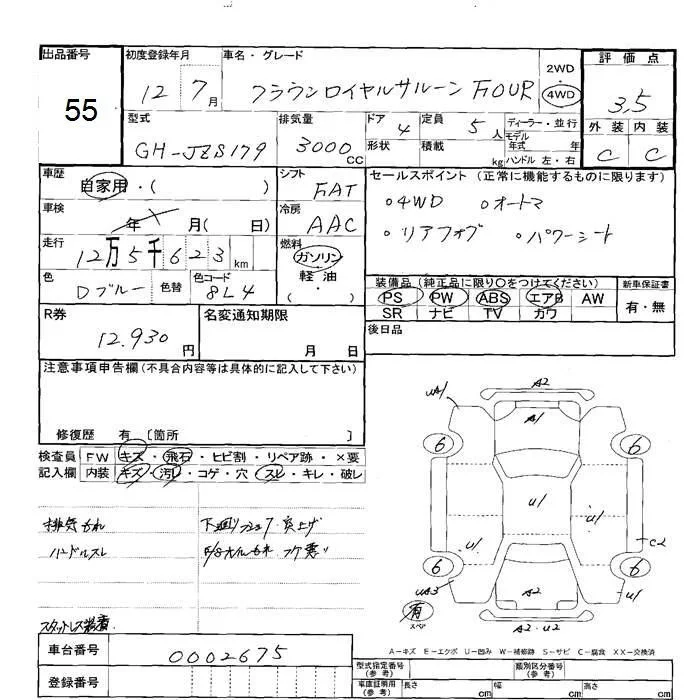 出品番号
55
初度登録年月
12 7月
車名・グレード
クラウンロイヤルサルーン FOUR
2WD
・
4WD
評価点
3.5
外装 内装
C C
型式
GH-JZS179
排気量
3000cc
ドア 4
形状
定員 5人
積載 kg
ディーラー・並行
モデル
年式 年
ハンドル 左・右
車歴
自家用・( )
車検
年 月( 日)
走行
12万5千623km
色
Dブルー
色替
色コード
8L4
シフト
FAT
冷房
AAC
燃料
ガソリン
・
軽油
( )
セールスポイント (正常に機能するものに限ります)
○4WD ○オートマ
○リアフォグ ○パワーシート
装備品(純正品に限り〇をつけてください)
PS PW ABS エアB AW
SR ナビ TV カワ
新車保証書
有・無
後日品
R券
12.930円
名変通知期限
月 日
注意事項申告欄(不具合内容等は具体的に記入して下さい)
修復歴 有 [箇所 ]
検査員 FW キズ・飛石・ヒビ割・リペア跡・×要
記入欄 内装 キズ・汚レ・コゲ・穴・スレ・キレ・破レ
排気もれ
ハンドルスレ
スタットレス装着
A2
UA1
A1
6 6
U1
U1
U1
C2
6 6
UA3
A2
U1
A2・U2
有
スペア
A-キズ E-エクボ U-凹み W-補修跡 S-サビ C-腐食 XX-交換済
車台番号
0002675
登録番号
型式指定番号
(参考)
類別区分番号
(参考)
車庫証明用
(参考)
長さ cm
幅 cm
高さ cm